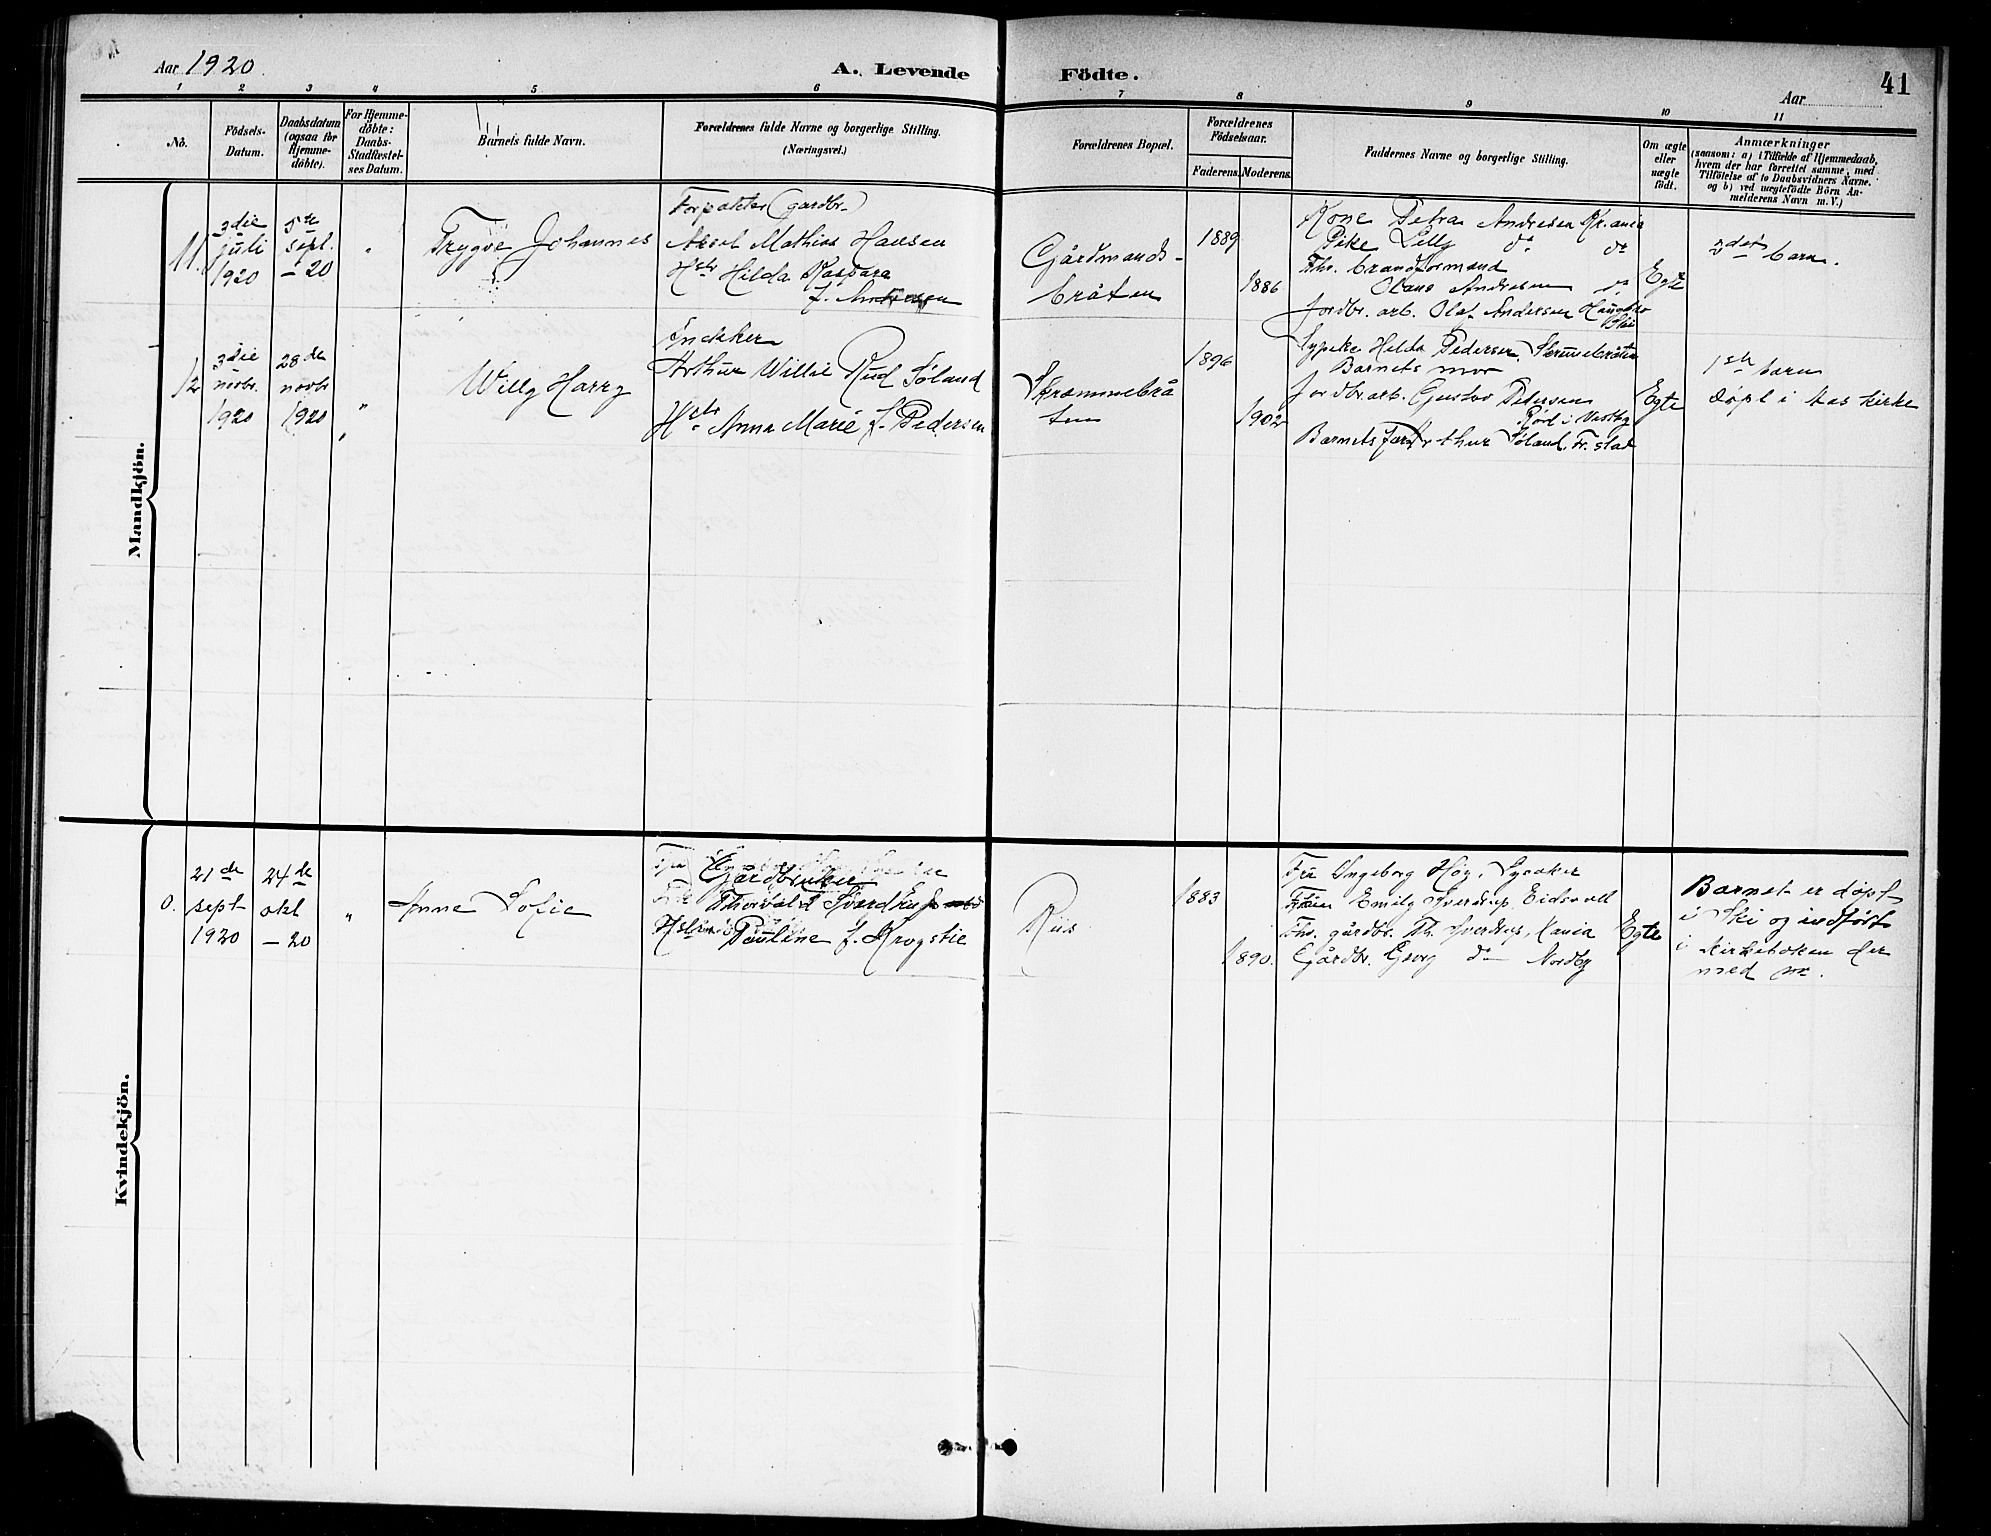 Aar 1920.
A. Levende Födte.
Aar
41
1 2 3 4 5 6 7 8 9 10 11
No.
Födsels-Datum.
Daabsdatum (ogsaa for Hjemme-döbte).
For Hjemme-döbte: Daabs-Stadfæstel-ses Datum.
Barnets fulde Navn.
Forældrenes fulde Navne og borgerlige Stilling. (Næringsvei.)
Forældrenes Bopæl.
Forældrenes Födselsaar.
Faderens. Moderens.
Faddernes Navne og borgerlige Stilling.
Om ægte eller uægte födt.
Anmærkninger
(saasom: a) i Tilfælde af Hjemmedaab, hvem der har forrettet samme, med Tilföielse af to Daabsvidners Navne. og b) ved uægtefödte Börn Anmelderens Navn m. V.)
Mandkjön.
11.
3die juli 1920
5te sept. – 20
"
Trygve Johannes
Forpakter (gardbr.)
Aksel Mathias Hansen
Hstr Hilda Kaspara
f. Andresen
Gårdmands-
bråten
1889
1886
Kone Petra Andresen Kr.ania
Pike Lilly do do
Fhv. brandformand
Olaus Andresen do
Jordbr. arb. Olaf Andersen
Egte
2det barn.
12
3die novbr. 1920
28de novbr 1920
"
Willy Harry
Arthur Willie Rud Söland
Hstr Anna Marie f. Pedersen
Skrammebrå
ten
1896
1902
Sypike Hilda Pedersen,
Barnets mor
Jordbr.arb. Gustav Pedersen
Rörd i Vestby
Barnets far Arthur Söland, Fr.stad
Egte
1ste barn
döpt i Aas kirke
Kvindekjön.
0.
21de sept 1920
24de okt – 20
"
Anne Sofie
Gårdbruker
Thorvald Sverdrup
Pauline f. Krogstie
Riis
1883
1890.
Fru Ingeborg Höy, Lysaker
Emily Sverdrup, Eidsvoll
Fhv. gårdbr. Th. Sverdrup, Kania
Gårdbr. Georg do Nordby
Egte
Barnet er döpt
i Ski og indfört
i kirkeboken der
med nr.